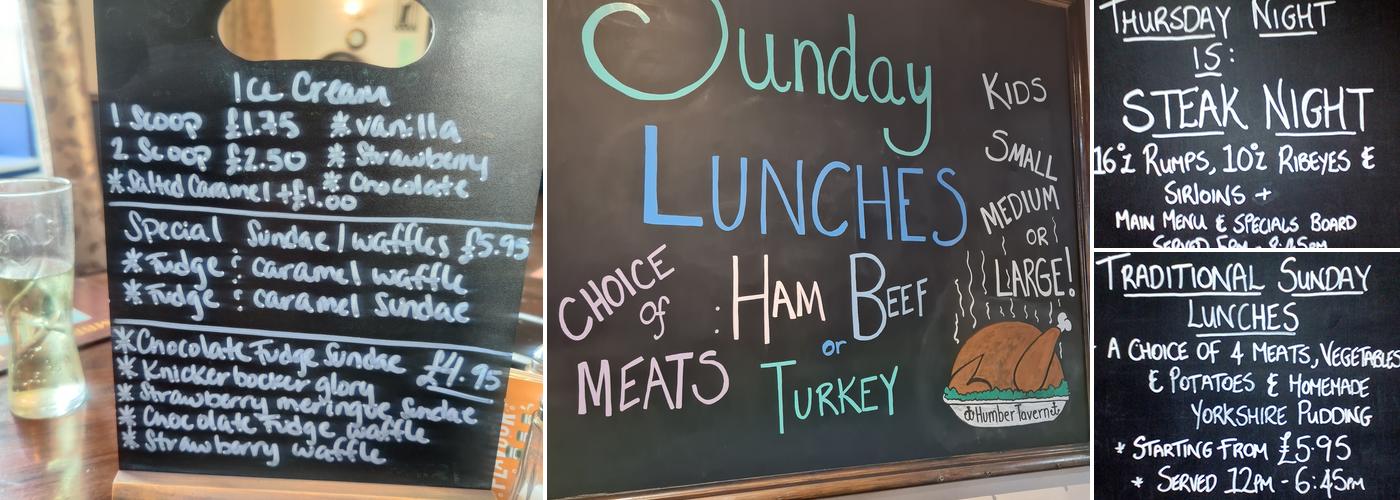 Ice Cream
1 Scoop £1.75 * vanilla
2 Scoop £2.50 * Strawberry
* Salted Caramel +£1.00 * Chocolate
Special Sundae / waffles £5.95
* Fudge & caramel waffle
* Fudge & caramel Sundae
* Chocolate Fudge Sundae £4.95
* Knickerbocker glory
* Strawberry meringue Sundae
* Chocolate Fudge waffle
* Strawberry waffle
Sunday
LUNCHES
KIDS
SMALL
MEDIUM
OR
LARGE!
CHOICE
of
MEATS
: HAM BEEF
or
TURKEY
Humber Tavern
THURSDAY NIGHT
IS:
STEAK NIGHT
16oz RUMPS, 10oz RIBEYES &
SIRLOINS +
MAIN MENU & SPECIALS BOARD
SERVED 5PM - 8:45PM
TRADITIONAL SUNDAY
LUNCHES
A CHOICE OF 4 MEATS, VEGETABLES
& POTATOES & HOMEMADE
YORKSHIRE PUDDING
* STARTING FROM £5.95
* SERVED 12PM - 6:45PM